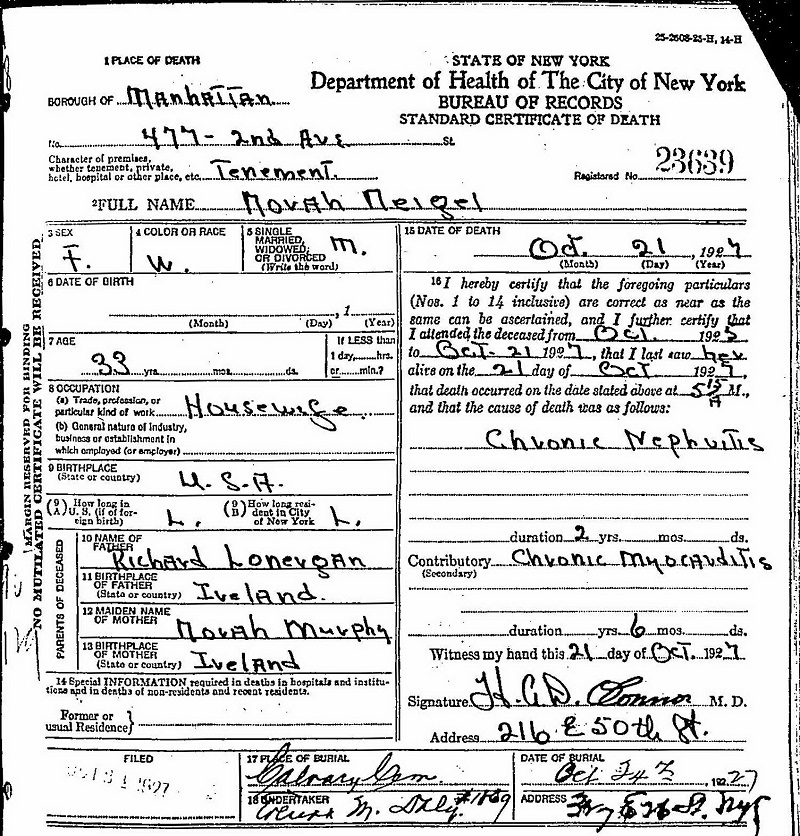 25-2608-25-H, 14-H
1 PLACE OF DEATH
STATE OF NEW YORK
Department of Health of The City of New York
BUREAU OF RECORDS
STANDARD CERTIFICATE OF DEATH
BOROUGH OF Manhattan
No. 477- 2nd Ave St.
Character of premises,
whether tenement, private,
hotel, hospital or other place, etc. Tenement.
Registered No. 23639
2 FULL NAME Norah Neigel
MARGIN RESERVED FOR BINDING
NO MUTILATED CERTIFICATE WILL BE RECEIVED
3 SEX
F.
4 COLOR OR RACE
W.
5 SINGLE
MARRIED,
WIDOWED,
OR DIVORCED
(Write the word)
M.
6 DATE OF BIRTH
, 1
(Month) (Day) (Year)
7 AGE
33 yrs. mos. ds.
If LESS than
1 day, hrs.
or min.?
8 OCCUPATION
(a) Trade, profession, or
particular kind of work Housewife
(b) General nature of industry,
business or establishment in
which employed (or employer)
9 BIRTHPLACE
(State or country) U.S.A.
(9A) How long in
U. S. (if of for-
eign birth) L.
(9B) How long resi-
dent in City
of New York L.
PARENTS OF DECEASED
10 NAME OF
FATHER
Richard Lonergan
11 BIRTHPLACE
OF FATHER
(State or country) Ireland.
12 MAIDEN NAME
OF MOTHER
Norah Murphy
13 BIRTHPLACE
OF MOTHER
(State or country) Ireland
14 Special INFORMATION required in deaths in hospitals and institu-
tions and in deaths of non-residents and recent residents.
Former or
usual Residence}
15 DATE OF DEATH
Oct. 21, 1927
(Month) (Day) (Year)
16 I hereby certify that the foregoing particulars
(Nos. 1 to 14 inclusive) are correct as near as the
same can be ascertained, and I further certify that
I attended the deceased from Oct 1925
to Oct-21 1927, that I last saw her
alive on the 21 day of Oct 1927,
that death occurred on the date stated above at 5 15 A M.,
and that the cause of death was as follows:
Chronic Nephritis
duration 2 yrs. mos. ds.
Contributory Chronic Myocarditis
(Secondary)
duration yrs. 6 mos. ds.
Witness my hand this 21 day of Oct. 1927
Signature H. A. D. O'Connor M. D.
Address 216 E 50th St.
FILED
17 PLACE OF BURIAL
Calvary Cem.
DATE OF BURIAL
Oct 24th 1927
18 UNDERTAKER
M. Daly. #1869
ADDRESS
St. NYC